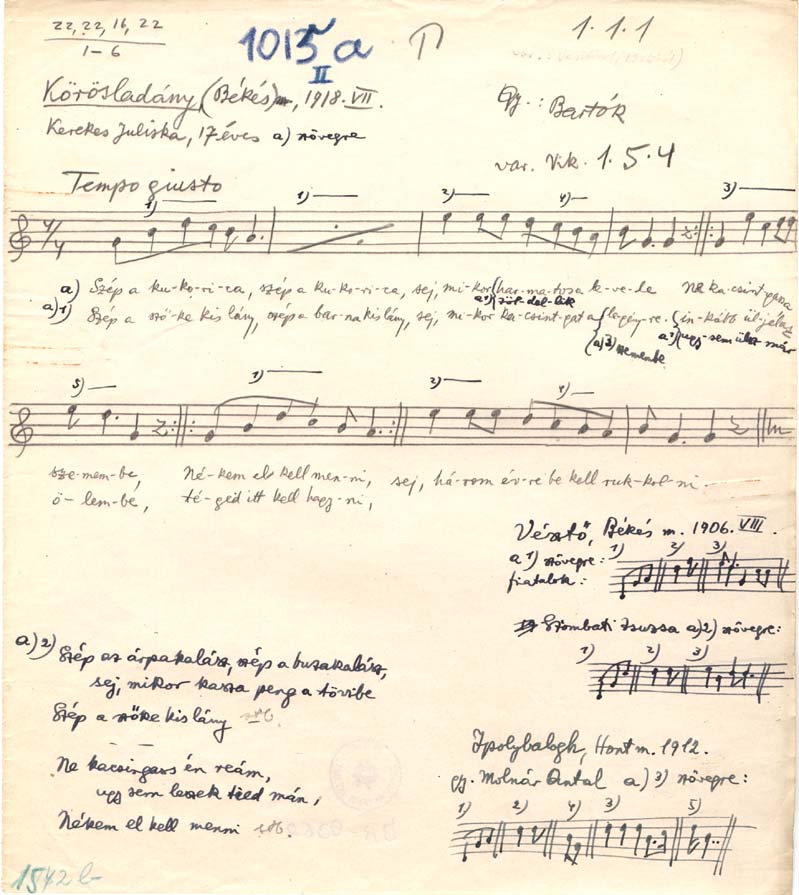 22, 22, 16, 22
1–6
1015 a
II
1.1.1
Körösladány, (Békés) m, 1918. VII.
Gy. : Bartók
Kerekes Juliska, 17 éves a) szövegre
var. Vik. 1.5.4
Tempo giusto
1) 1) 2) 4) 3)
4/4
a) Szép a ku-ko-ri-ca, szép a ku-ko-ri-ca, sej, mi-kor har-ma-tos a le-ve-le Ne ka-csint-gass
a)1) Szép a ző-ke kis lány, szép a bar-na kis lány, sej, mi-kor ka-csint-gat a legény-re. in-kább ülj
a)3) szemembe
ugy-sem ülsz már
5) 1) 2) 4)
sze-mem-be, Né-kem el kell men-ni, sej, há-rom év-re be kell ruk-kol-ni.
ö-lem-be, té-ged itt kell hagy-ni,
Vésztő, Békés m. 1906. VIII.
a 1) szövegre: 1) 2) 3)
fiatalok:
Szombati Zsuzsa a)2) szövegre:
1) 2) 3)
a)2) Szép az árpakalász, szép a buzakalász,
sej, mikor kasza peng a tövibe
Szép a szőke kis lány stb.
Ne kacsingass én reám,
ugy sem leszek tied mán,
Nékem el kell menni stb.
Ipolybalogh, Hont m. 1912.
gy. Molnár Antal a)3) szövegre:
1) 2) 4) 3) 5)
1542 b